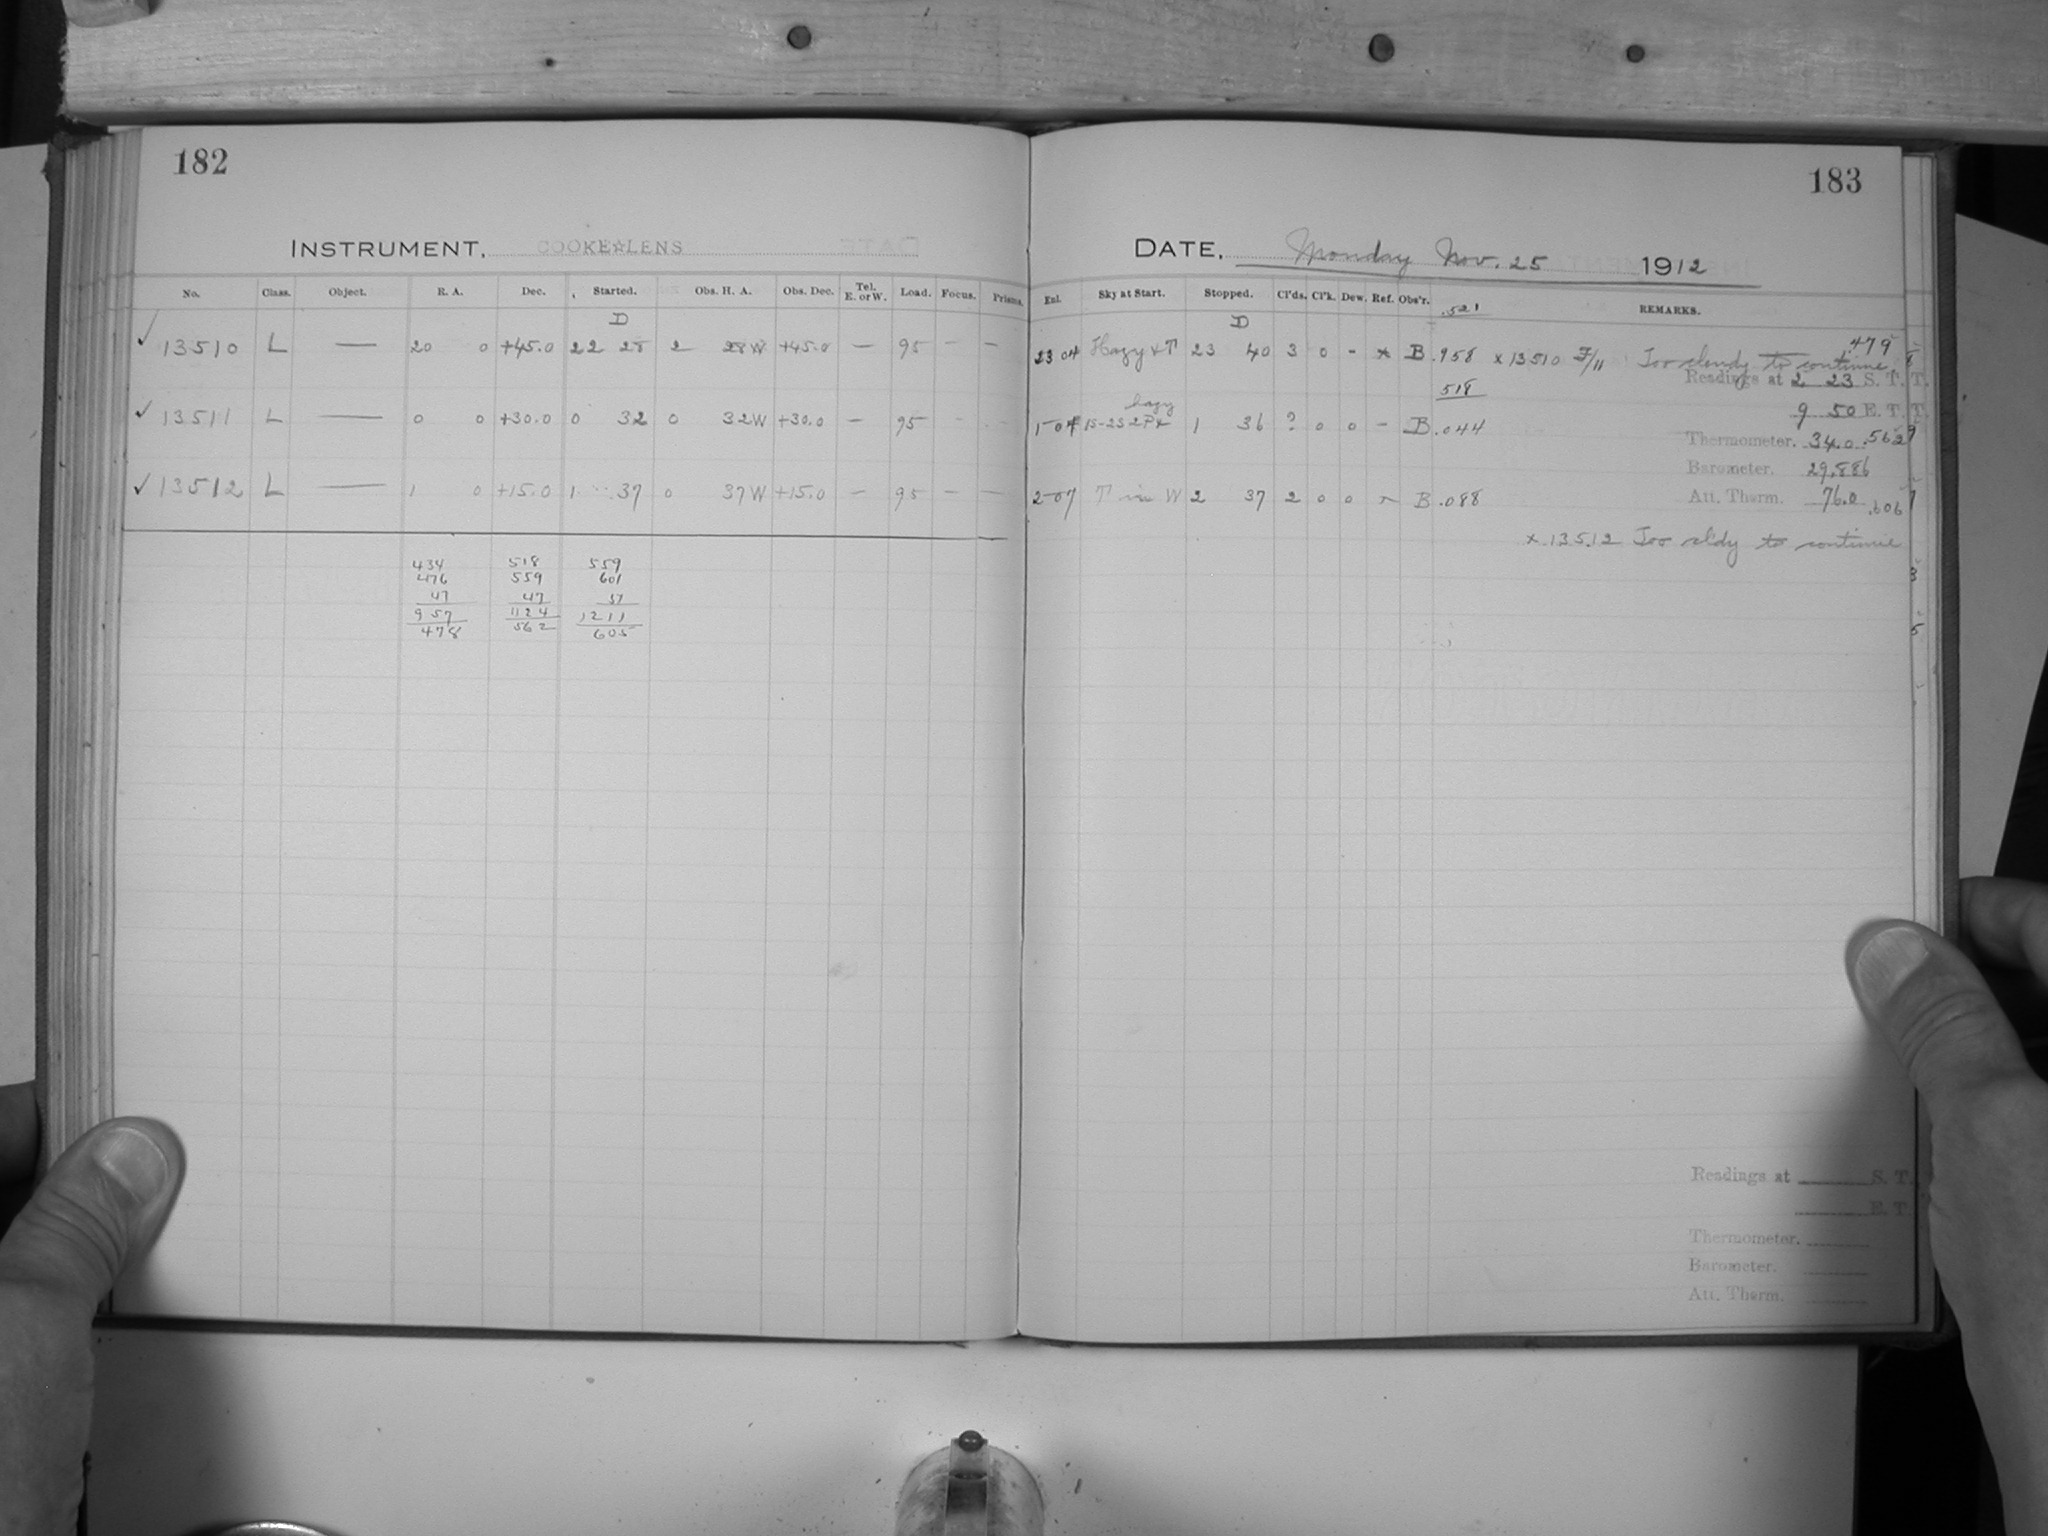 182
INSTRUMENT, COOKE☆LENS
No. Class. Object. R. A. Dec. Started. Obs. H. A. Obs. Dec. Tel. E. or W. Load. Focus. Prisms.
D
✓ 13510 L — 20 0 +45.0 22 28 2 28W +45.0 — 95 — —
✓ 13511 L — 0 0 +30.0 0 32 0 32W +30.0 — 95 - -
✓ 13512 L — 1 0 +15.0 1 37 0 37W +15.0 — 95 — —
434 518 559
476 559 601
47 47
957 1124 1211
478 562 605
183
DATE, Monday Nov. 25 1912
Exl. Sky at Start. Stopped. Cl'ds. Cl'k. Dew. Ref. Obs'r. .521 REMARKS.
D
479
23 04 Hazy + T 23 40 3 0 - x B .958 x 13510 F/11 Too cloudy to continue
518 Readings at 2 23 S. T.
hazy
9 50 E. T.
1 36 ? 0 0 - B .044
Thermometer. 34.0 .562
Barometer. 29.886
2-07 T in W 2 37 2 0 0 - B .088 Att. Therm. 76.0 .606
x 13512 Too cldy to continue
Readings at S. T.
E. T.
Thermometer.
Barometer.
Att. Therm.